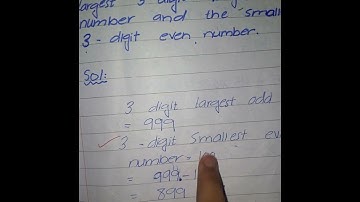 largest 3 digit
number and the small
3 - digit even number.
Sol:
3 digit largest odd
= 999
3 - digit Smallest eve
number = 100
= 999 - 1
= 899